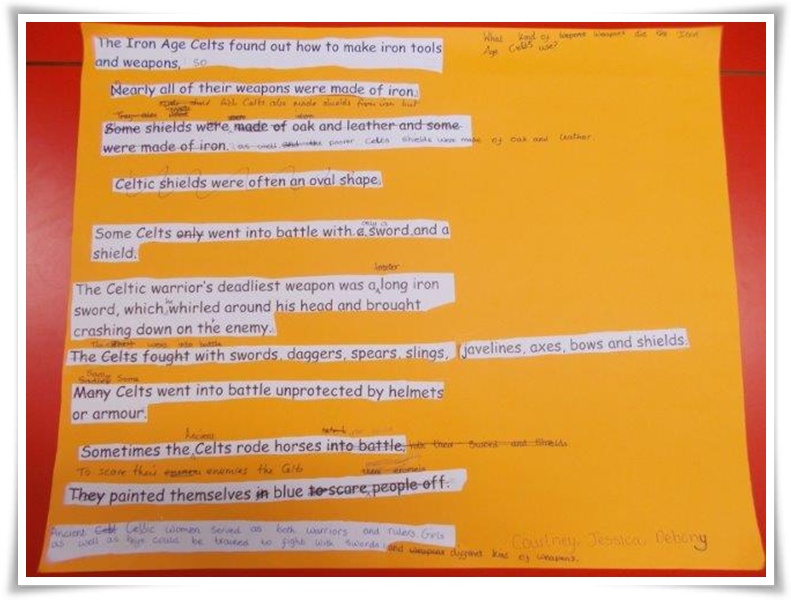 What kind of weapons weapons did the Iron
Age Celts use?
The Iron Age Celts found out how to make iron tools
and weapons, so
Nearly all of their weapons were made of iron.
Celts also made shields from iron but
Some shields were made of oak and leather and some
were made of iron. as well poorer Celts shields were made of oak and leather.
Celtic shields were often an oval shape.
only a
Some Celts only went into battle with a sword and a
shield.
The Celtic warrior's deadliest weapon was a long iron
he
sword, which whirled around his head and brought
crashing down on the enemy.
went into battle
The Celts fought with swords, daggers, spears, slings, javelines, axes, bows and shields.
Some
Many Celts went into battle unprotected by helmets
or armour.
Ancient
Sometimes the Celts rode horses into battle, with their sword and shields
To scare their enemies the Celts
They painted themselves in blue to scare people off.
Ancient Celtic women served as both warriors and rulers. Girls
as well as boys could be trained to fight with swords and weapons diffrent kind of weapons.
Courtney, Jessica, Debony